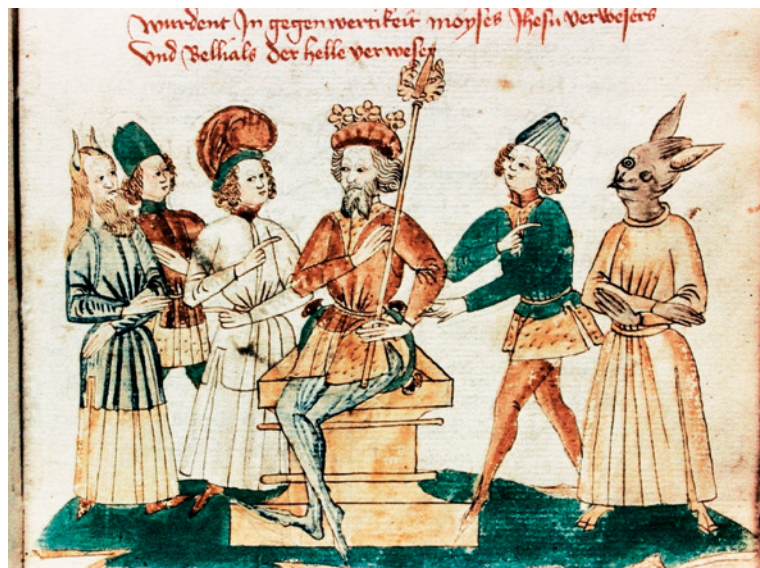 wurdent In gegenwertikeit moyses Jhesu verwesers
Vnd Bellials der helle verweser